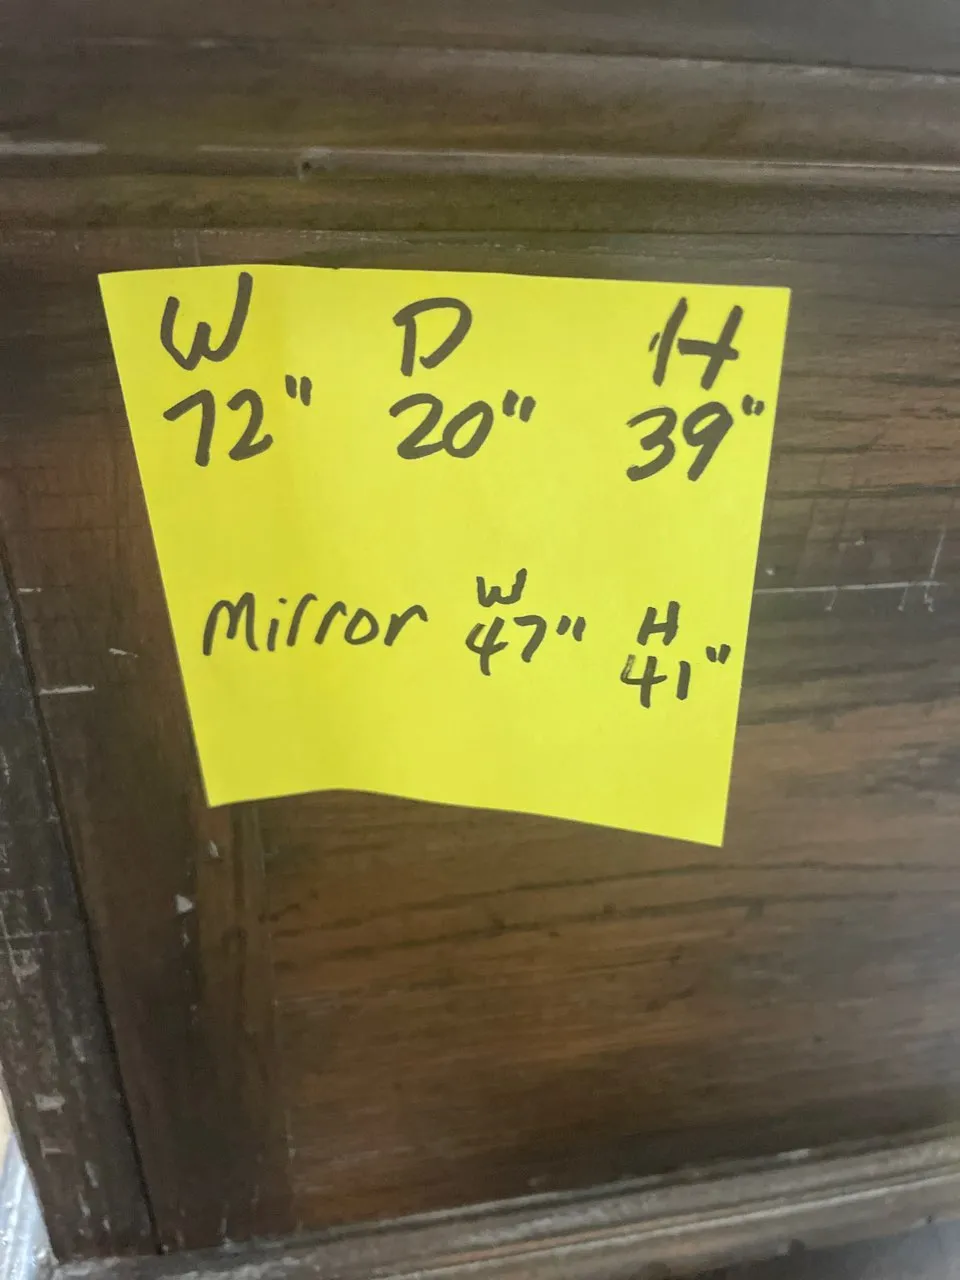 W D H
72" 20" 39"
Mirror W 47" H 41"